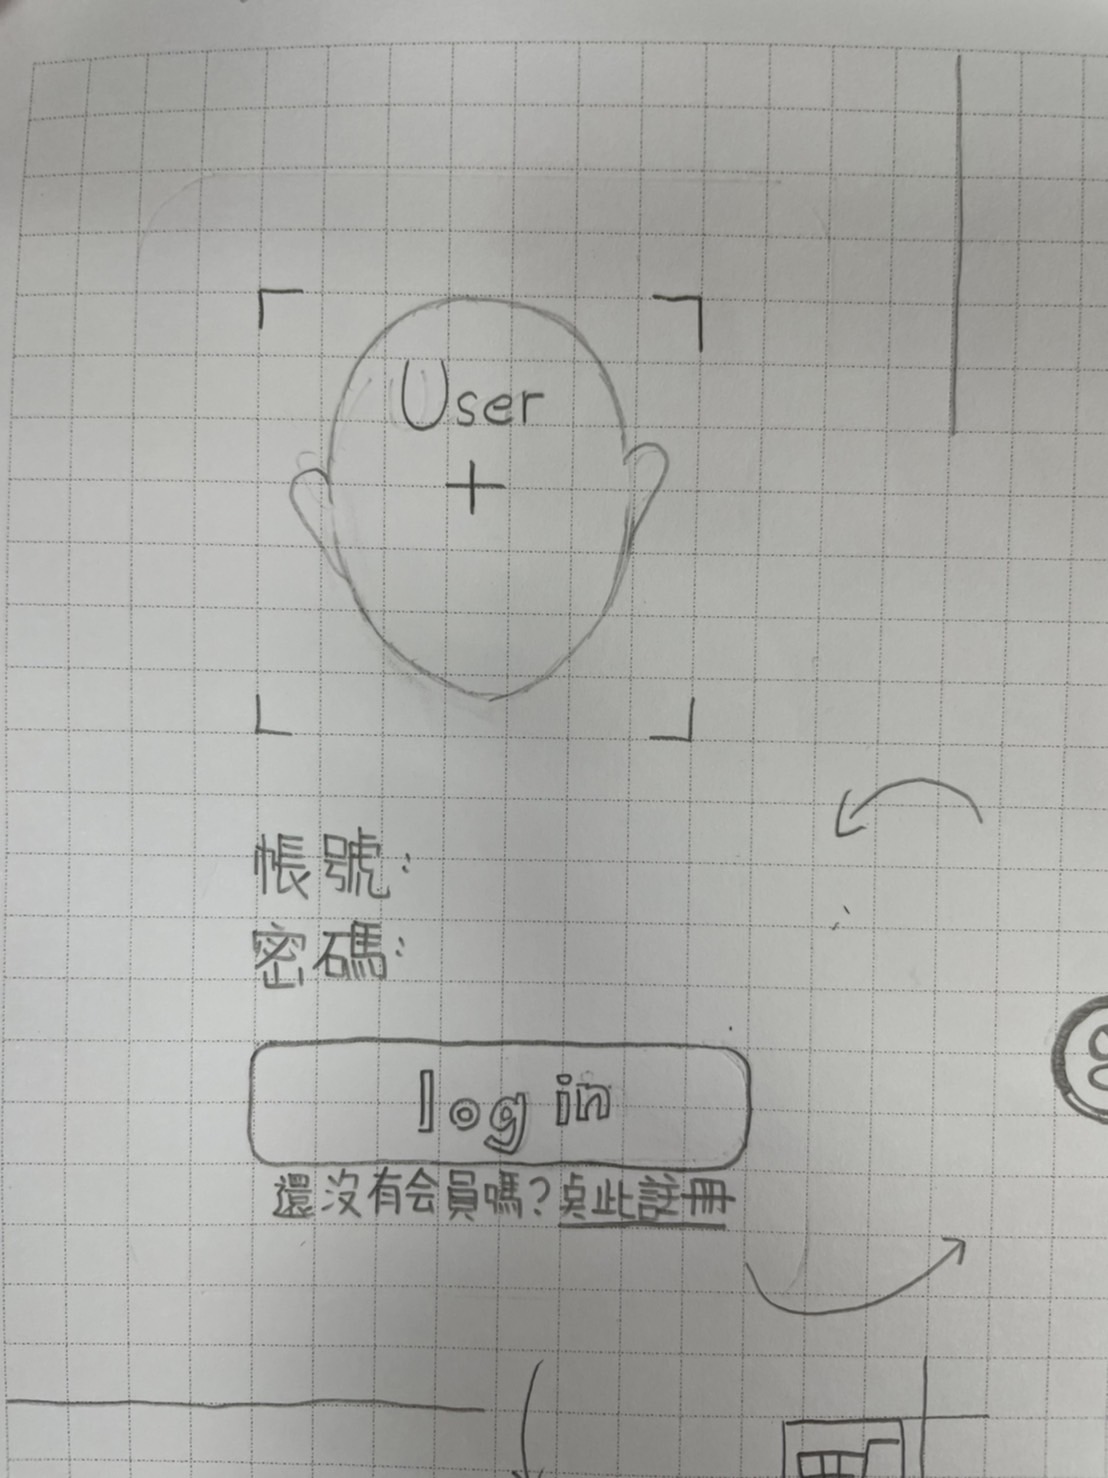 User
帳號：
密碼：
log in
還沒有会員嗎？点此註冊